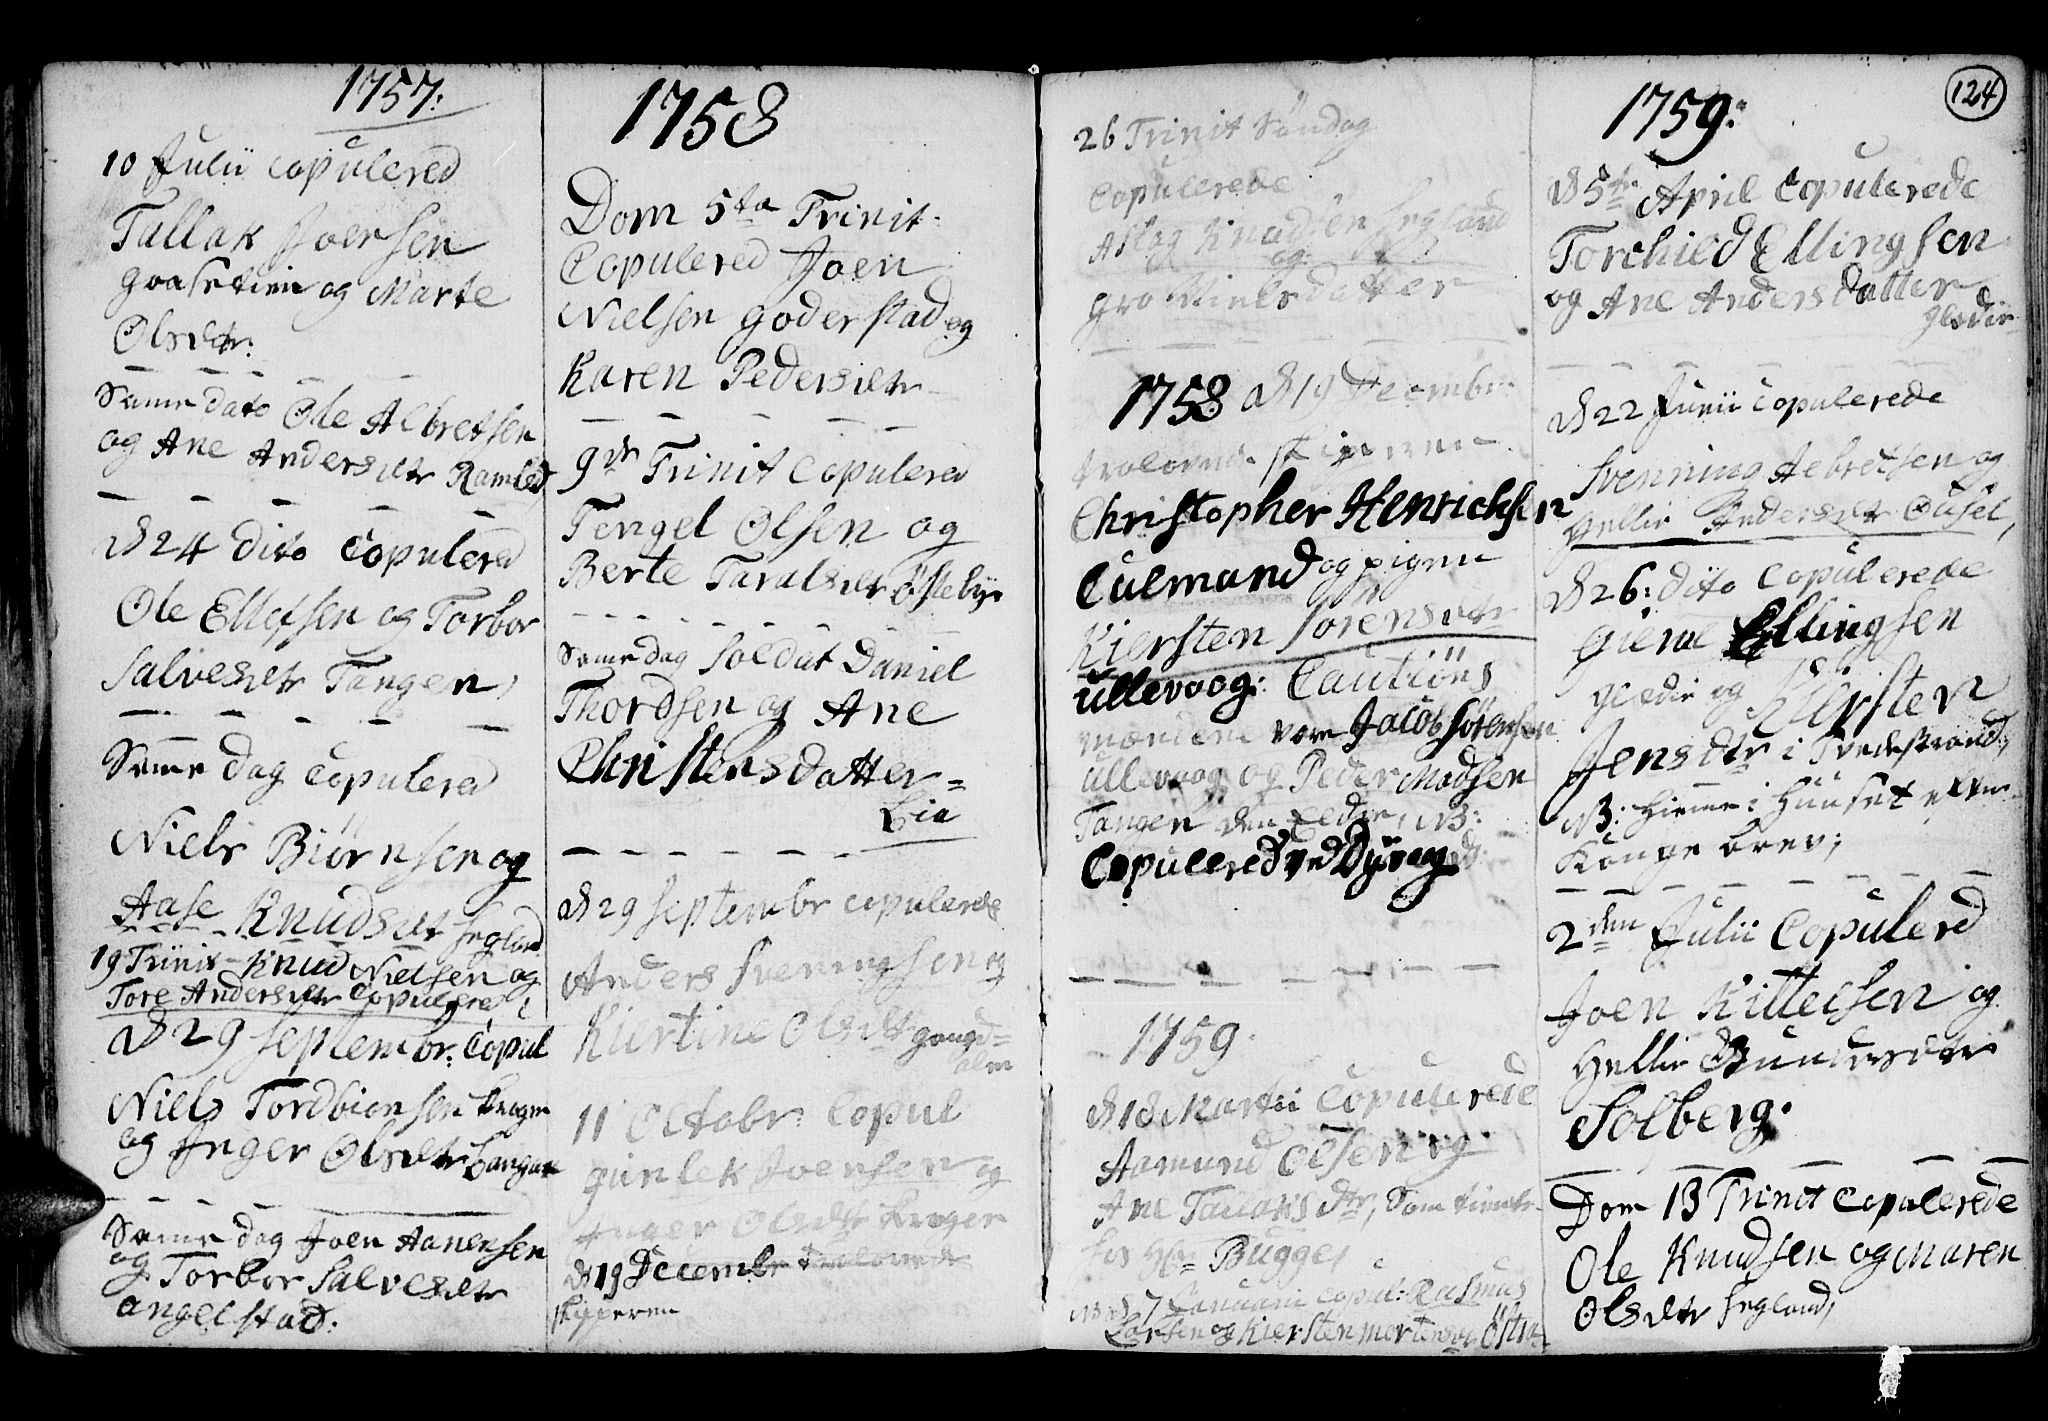 1757:
10 Julii Copulered
Tallak Joersen
gaasetien og Marte
Olsdtr:
Same dato Ole Albretsen
og Ane Andersdtr Ramled
D 24 dito Copulered
Ole Ellefsen og Torbor
Salvesdtr Tangen,
Same dag Copulered
Niels Biørnsen og
Aase Knudsdtr Segland
19 Trinit Knud Nielsen og
Tore Andersdtr Copulered
D 29 Septembr: Copul
Niels Tordbiønsen krogen
og Inger Olsdtr Langaa
Same dag Joen Aanensen
og Torbor Salvesdtr
angelstad:
1758
Dom 5ta Trinit:
Copulered Joen
Nielsen goderstad og
Karen Pedersdtr
9de Trinit Copulered
Tengel Olsen og
Berte Taralsdtr Østebye
Same dag Soldat Daniel
Thordsen og Ane
Christensdatter
Lia
D 29 Septembr Copulerede
Anders Sveningsen og
Kiertine Olsdtr
11 Octobr: Copul
gunlek Joensen og
Inger Olsdtr kroger
D 19 Decembr trolovede
skipperen
124
26 Trinit Søndag
Copulerede
Aslag Knudsen Segland
og
gro Nielsdatter
1758 D 19 Decembr:
trolovede skipperen
Christopher Henrichsen
Culmand og pigen
Kiersten Sørensdtr
ullevaag: Cautions
mændene vare Jacob Sørensen
ullevaag og Peder Madsen
Tangen den Eldre, NB:
Copulered ved Dyvaag
1759
D 18 Martii Copulerede
Aamund Olsen og
Ane Tallaksdtr, som tient
hos Hr: Bugge,
NB D 7 Januarii Copul: Rasmus
Larsen og Kiersten Mortensdtr Östraa
1759:
D 5te April Copulerede
Torchild Ellingsen
og Ane Andersdatter
glødie
D 22 Junii Copulerede
Svenning Albretsen og
Hellie Andersdtr Ousel,
D 26: dito Copulerede
Giert Ellingsen
glødie og Kiersten
Jensdtr i Tvedestrand,
NB: hiemme i Huuset efter
Konge brev;
2den Julii Copulered
Joen Kittelsen og
Hellie Gundersdtr
Solberg.
Dom 13 Trinit Copulerede
Ole Knudsen og Maren
Olsdtr Segland,